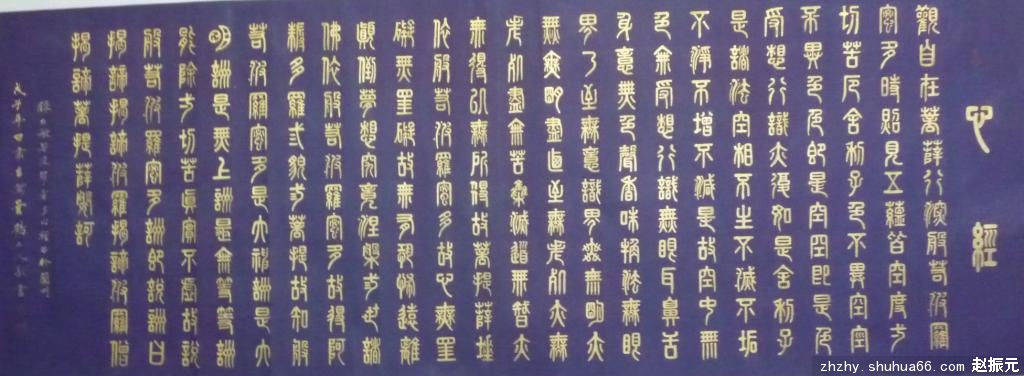 心經
觀自在菩薩行深般若波羅
蜜多時照見五蘊皆空度一
切苦厄舍利子色不異空空
不異色色即是空空即是色
受想行識亦復如是舍利子
是諸法空相不生不滅不垢
不淨不增不減是故空中無
色無受想行識無眼耳鼻舌
身意無色聲香味觸法無眼
界乃至無意識界無無明亦
無無明盡乃至無老死亦無
老死盡無苦集滅道無智亦
無得以無所得故菩提薩埵
依般若波羅蜜多故心無罣
礙無罣礙故無有恐怖遠離
顛倒夢想究竟涅槃三世諸
佛依般若波羅蜜多故得阿
耨多羅三藐三菩提故知般
若波羅蜜多是大神咒是大
明咒是無上咒是無等等咒
能除一切苦真實不虛故說
般若波羅蜜多咒即說咒曰
揭諦揭諦波羅揭諦波羅僧
揭諦菩提薩婆訶
zhzhy.shuhua66.com 赵振元